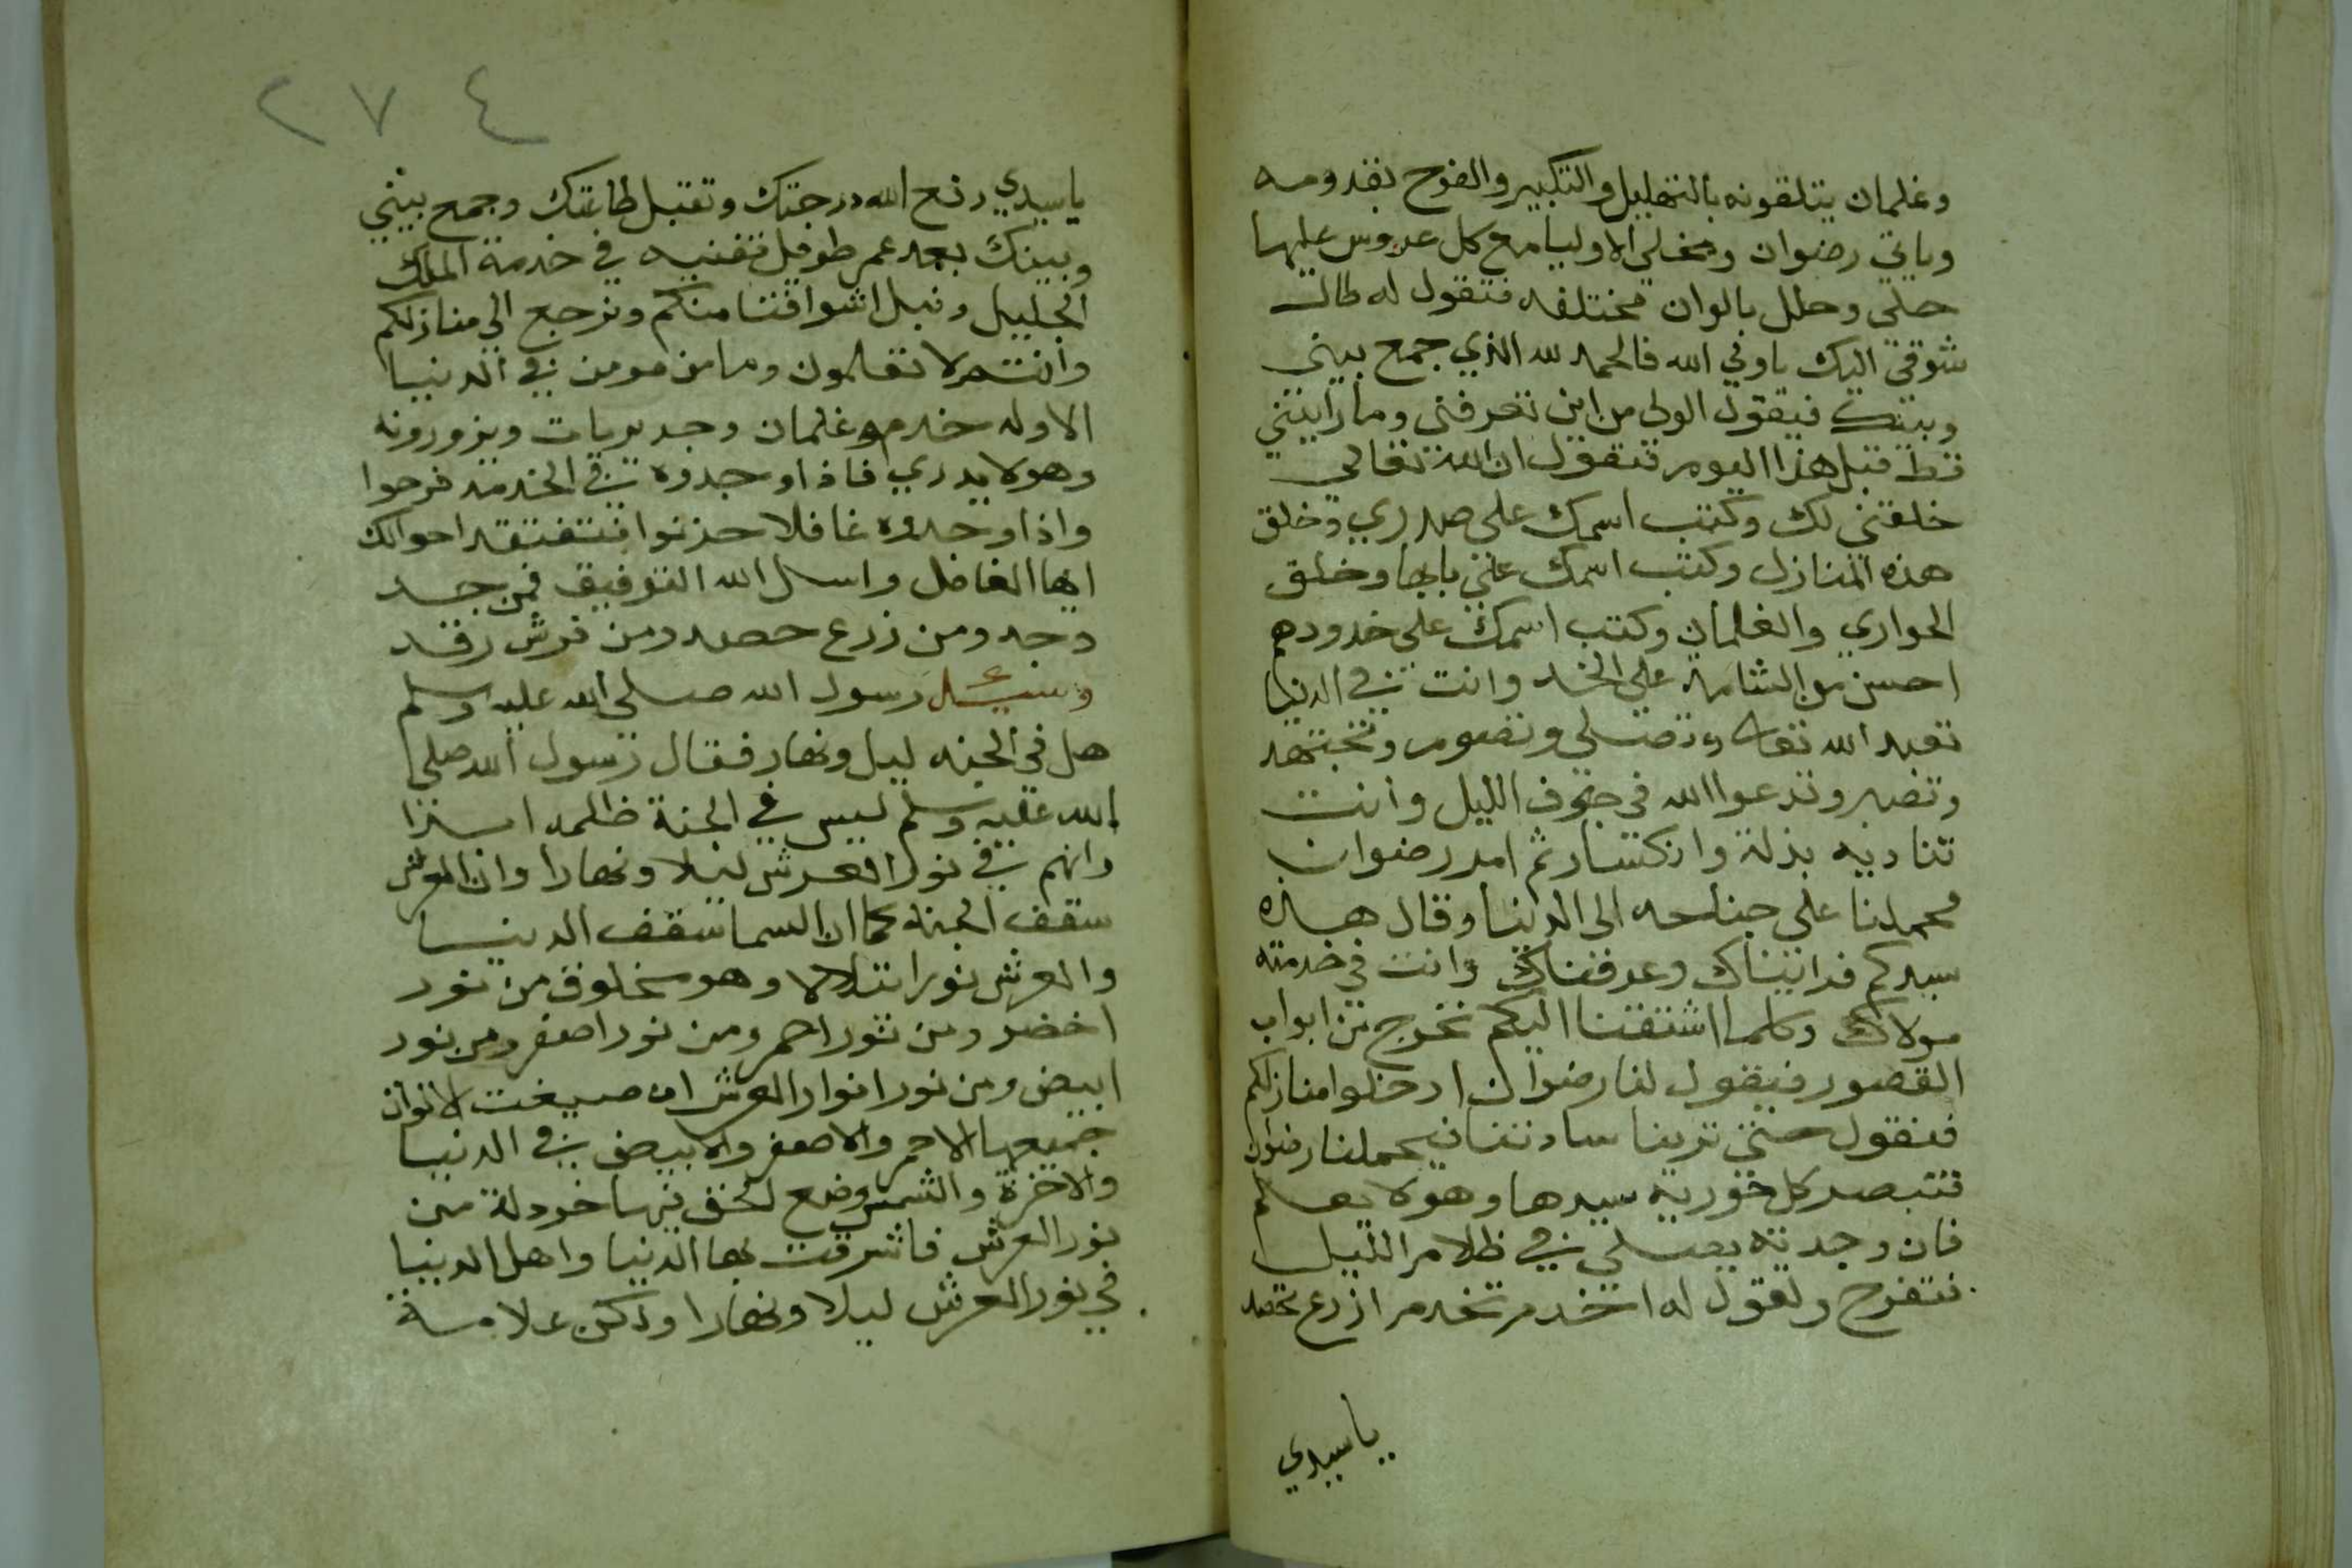 وغلمان يتلقونه بالتهليل والتكبير والفرح بقدومه
وياتي رضوان ومخلي الاوليا مع كل عروس عليها
حلي وحلل بالوان مختلفه فتقول له طالت
شوقي اليك ياولي الله فالحمد لله الذي جمع بيني
وبينك فيقول الولي من اين تعرفني وما رايتني
قط قبل هذا اليوم فتقول ان الله تعالي
خلقني لك وكتب اسمك على صدري وخلق
هذه المنازل وكتب اسمك علي بابها وخلق
الجواري والغلمان وكتب اسمك على خدودهم
احسن من الشامة علي الخد وانت في الدنيا
تعبد الله تعالى وتصلي وتصوم وتجتهد
وتصبر وتدعوا الله في جوف الليل وانت
تناديه بذلة وانكسار ثم امر رضوان
فحملنا على جناحه الى الدنيا وقال هذه
سيدكم فرايناك وعرفناك وانت في خدمة
مولاك وكلما اشتقنا اليكم نخرج من ابواب
القصور فيقول لنا رضوان ادخلوا منازلكم
فنقول حتي ترينا ساداتنا فيحملنا رضوان
فتبصر كل حورية سيدها وهو لا يعلم
فان وجدته يصلي في ظلام الليل
فتفرح وتقول له اخدم تخدم ازرع تحصد
ياسيدي
٢٧٤
ياسيدي رفع الله درجتك وتقبل طاعتك وجمع بيني
وبينك بعد عمر طويل تفنيه في خدمة الملك
الجليل ونبل اشواقنا منكم ونرجع الي منازلكم
وانتم لا تعلمون وما من مومن في الدنيا
الا وله خدم وغلمان وحوريات ويزورونه
وهو لا يدري فاذا وجدوه في الخدمة فرحوا
واذا وجدوه غافلا حزنوا فتفقد احوالك
ايها الغافل واسال الله التوفيق فمن جد
وجد ومن زرع حصد ومن فرش رقد
وسئل رسول الله صلى الله عليه وسلم
هل في الجنه ليل ونهار فقال رسول الله صلى
الله عليه وسلم ليس في الجنة ظلمه ابدا
وانهم في نور العرش ليلا ونهارا وان العرش
سقف الجنة كما ان السما سقف الدنيا
والعرش نورا يتلالا وهو مخلوق من نور
اخضر ومن نور احمر ومن نور اصفر ومن نور
ابيض ومن نور انوار العرش صبغت الانوان
جميعها الاحمر والاصفر والابيض في الدنيا
والاخرة والشمس وضع الحق فيها خردلة من
نور العرش فاشرقت بها الدنيا واهل الدنيا
في نور العرش ليلا ونهارا ولكن علامة